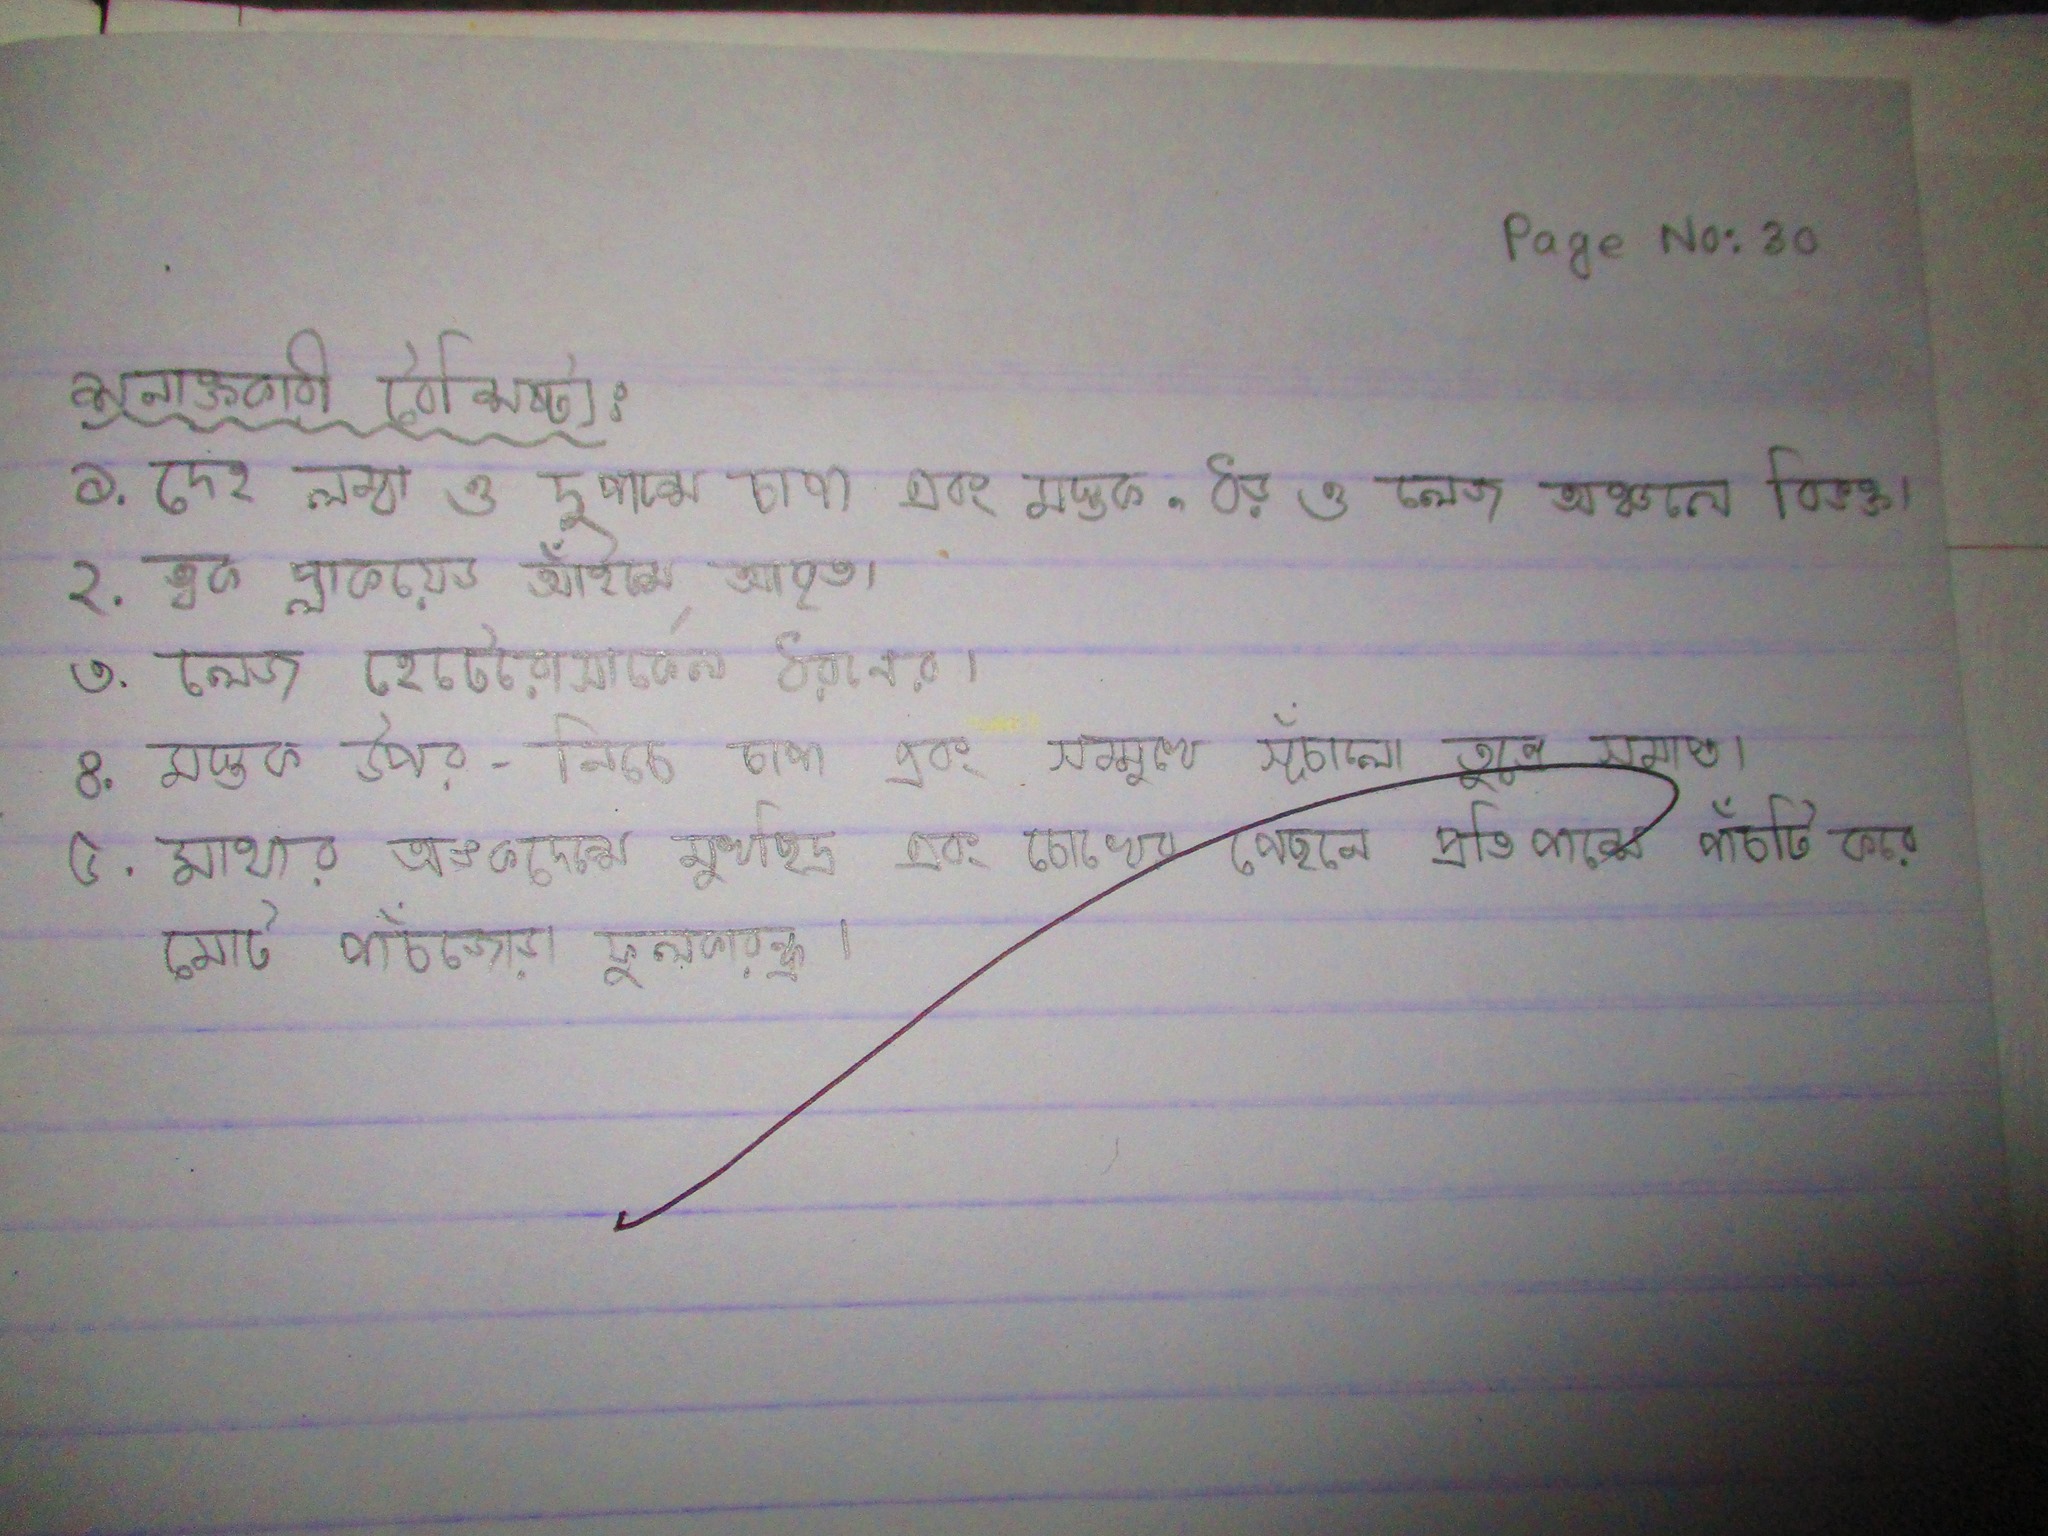 Page No: 30
শনাক্তকারী বৈশিষ্ট্য:
১. দেহ লম্বা ও দুপাশে চাপা এবং মস্তক, ধড় ও লেজ অঞ্চলে বিভক্ত।
২. ত্বক প্লাকয়েড আঁইশে আবৃত।
৩. লেজ হেটেরোসার্কেল ধরনের।
৪. মস্তক উপর-নিচে চাপা এবং সম্মুখে সূঁচালো তুন্ডে সমাপ্ত।
৫. মাথার অঙ্কদেশে মুখছিদ্র এবং চোখের পেছনে প্রতি পাশে পাঁচটি করে
মোট পাঁচজোড়া ফুলকারন্ধ্র।